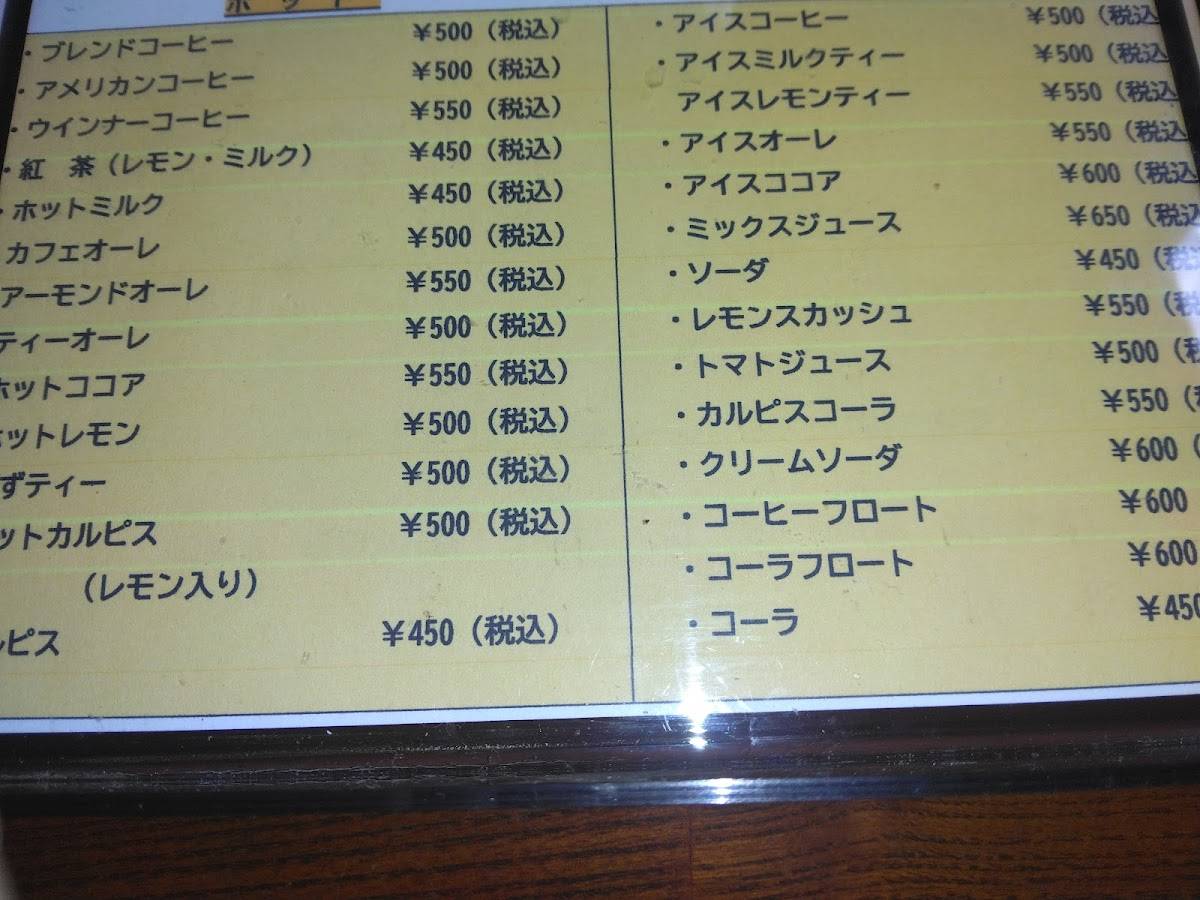 ホット
・ブレンドコーヒー ¥500（税込）
・アメリカンコーヒー ¥500（税込）
・ウインナーコーヒー ¥550（税込）
・紅 茶（レモン・ミルク） ¥450（税込）
・ホットミルク ¥450（税込）
カフェオーレ ¥500（税込）
アーモンドオーレ ¥550（税込）
ティーオーレ ¥500（税込）
ホットココア ¥550（税込）
ホットレモン ¥500（税込）
ずティー ¥500（税込）
ットカルピス ¥500（税込）
（レモン入り）
ルピス ¥450（税込）
・アイスコーヒー ¥500（税込
・アイスミルクティー ¥500（税込
アイスレモンティー ¥550（税込
・アイスオーレ ¥550（税込
・アイスココア ¥600（税込
・ミックスジュース ¥650（税込
・ソーダ ¥450（税
・レモンスカッシュ ¥550（税
・トマトジュース ¥500（税
・カルピスコーラ ¥550（
・クリームソーダ ¥600（
・コーヒーフロート ¥600
・コーラフロート ¥600
・コーラ ¥450